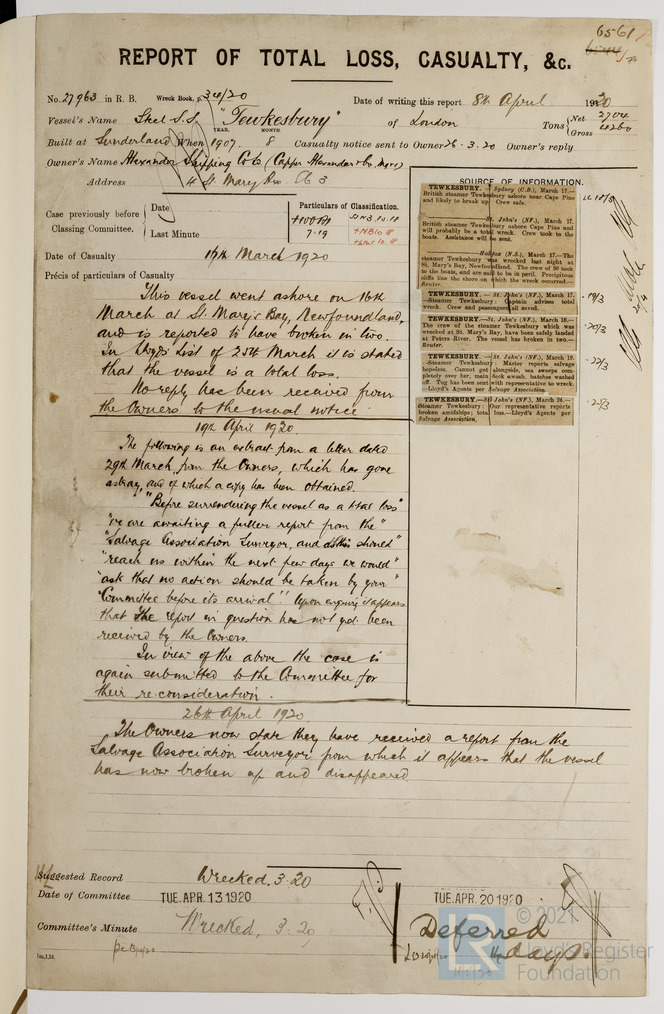 6561
REPORT OF TOTAL LOSS, CASUALTY, &c.
No. 27963 in R. B. Wreck Book, p. 34/20 Date of writing this report 8th April 1920
Vessel's Name Steel S.S. "Tewkesbury" of London Tons Net 2704 Gross 4260
YEAR. MONTH.
Built at Sunderland When 1907 8 Casualty notice sent to Owner 26.3.20 Owner's reply
Owner's Name Alexander Shipping Co Ld (Capper Alexander & Co. Mgrs)
Address 4 St. Mary Axe E C 3
Case previously before Classing Committee.
Date
Last Minute
Particulars of Classification.
+100A1
7.19
Date of Casualty 16th March 1920
Précis of particulars of Casualty
This vessel went ashore on 16th
March at St. Mary's Bay, Newfoundland,
and is reported to have broken in two.
In Lloyd's List of 25th March it is stated
that the vessel is a total loss.
No reply has been received from
the Owners to the usual notice.
19th April 1920.
The following is an extract from a letter dated
29th March from the Owners, which has gone
astray, and of which a copy has been obtained.
"Before surrendering the vessel as a total loss"
"we are awaiting a fuller report from the"
"Salvage Association Surveyor, and as this should"
"reach us within the next few days we would"
"ask that no action should be taken by your"
"Committee before its arrival". Upon enquiry it appears
that the report in question has not yet been
received by the Owners.
In view of the above the case is
again submitted to the Committee for
their re-consideration.
26th April 1920.
The Owners now state they have received a report from the
Salvage Association Surveyor from which it appears that the vessel
has now broken up and disappeared.
SOURCE OF INFORMATION.
TEWKESBURY.—Sydney (C.B.), March 17.—
British steamer Tewkesbury ashore near Cape Pine
and likely to break up. Crew safe.
St. John's (NF.), March 17.
British steamer Tewkesbury ashore Cape Pine and
will probably be a total wreck. Crew took to the
boats. Assistance will be sent.
Halifax (N.S.), March 17.—The
steamer Tewkesbury was wrecked last night at
St. Mary's Bay, Newfoundland. The crew of 30 took
to the boats, and are said to be in peril. Precipitous
cliffs line the shore on which the wreck occurred.—
Reuter.
TEWKESBURY.—St. John's (NF.), March 17.
—Steamer Tewkesbury: Captain advises total
wreck. Crew and passengers all saved.
19/3
TEWKESBURY.—St. John's (NF.), March 18.—
The crew of the steamer Tewkesbury which was
wrecked at St. Mary's Bay, have been safely landed
at Peters River. The vessel has broken in two.—
Reuter.
20/3
TEWKESBURY.—St. John's (NF.), March 19.
—Steamer Tewkesbury: Master reports salvage
hopeless. Cannot get alongside, sea sweeps com-
pletely over her, main deck awash, hatches washed
off. Tug has been sent with representative to wreck.
—Lloyd's Agents per Salvage Association.
22/3
TEWKESBURY.—St. John's (NF.), March 24.—
Steamer Tewkesbury: Our representative reports
broken amidships; total loss.—Lloyd's Agents per
Salvage Association.
25/3
Suggested Record Wrecked, 3.20
Date of Committee TUE. APR. 13 1920 TUE. APR. 20 1920
Committee's Minute Wrecked, 3.20
Deferred
14 days.
LR
© 2021
Lloyd's Register
Foundation